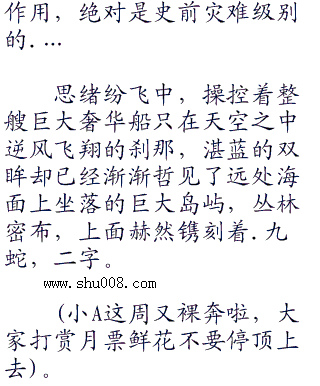 作用，绝对是史前灾难级别
的....
思绪纷飞中，操控着整
艘巨大奢华船只在天空之中
逆风飞翔的刹那，湛蓝的双
眸却已经渐渐哲见了远处海
面上坐落的巨大岛屿，丛林
密布，上面赫然镌刻着.九
蛇，二字。
www.shu008.com
(小A这周又裸奔啦，大
家打赏月票鲜花不要停顶上
去)。